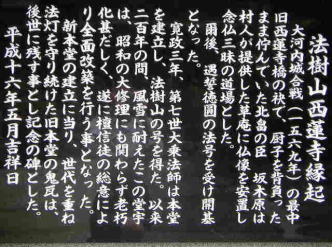 法樹山西蓮寺縁起
大河内城合戦(一五六九年)の最中
旧西蓮寺橋の袂で、厨子を背負った
まま佇んでいた北畠の臣 坂木原は
村人が提供した草庵に仏像を安置し
念仏三昧の道場とした。
爾後、遇誓徳圓の法号を受け開基
となった。
寛政三年、第七世大乗法師は本堂
を建立し、法樹山の号を得た。以来
二百年の間、風雪に耐えたこの堂宇
は、昭和の大修理にも関わらず老朽
化甚だしく、遂に檀信徒の総意によ
り全面改築を行う事となった。
新本堂の建立に当り、世代を重ね
法灯を守り続けた旧本堂の鬼瓦は、
後世に残す事とし記念の碑とした。
平成十六年五月吉祥日